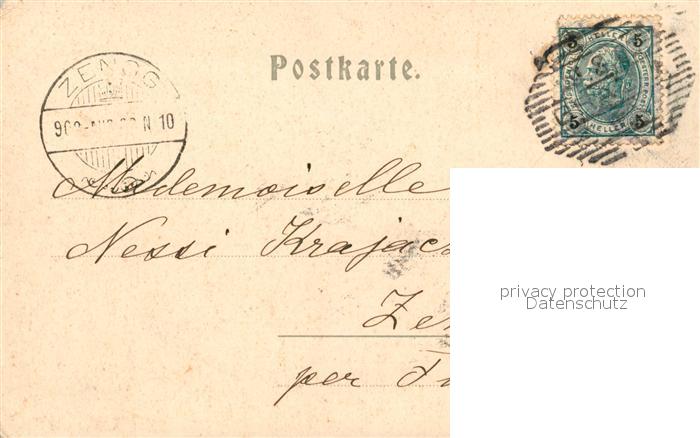 Postkarte.
ZENGG
5 HELLER 5
5 HELLER 5
N 10
Mademoiselle
Nessi Krajac
Ze
per Fi
privacy protection
Datenschutz